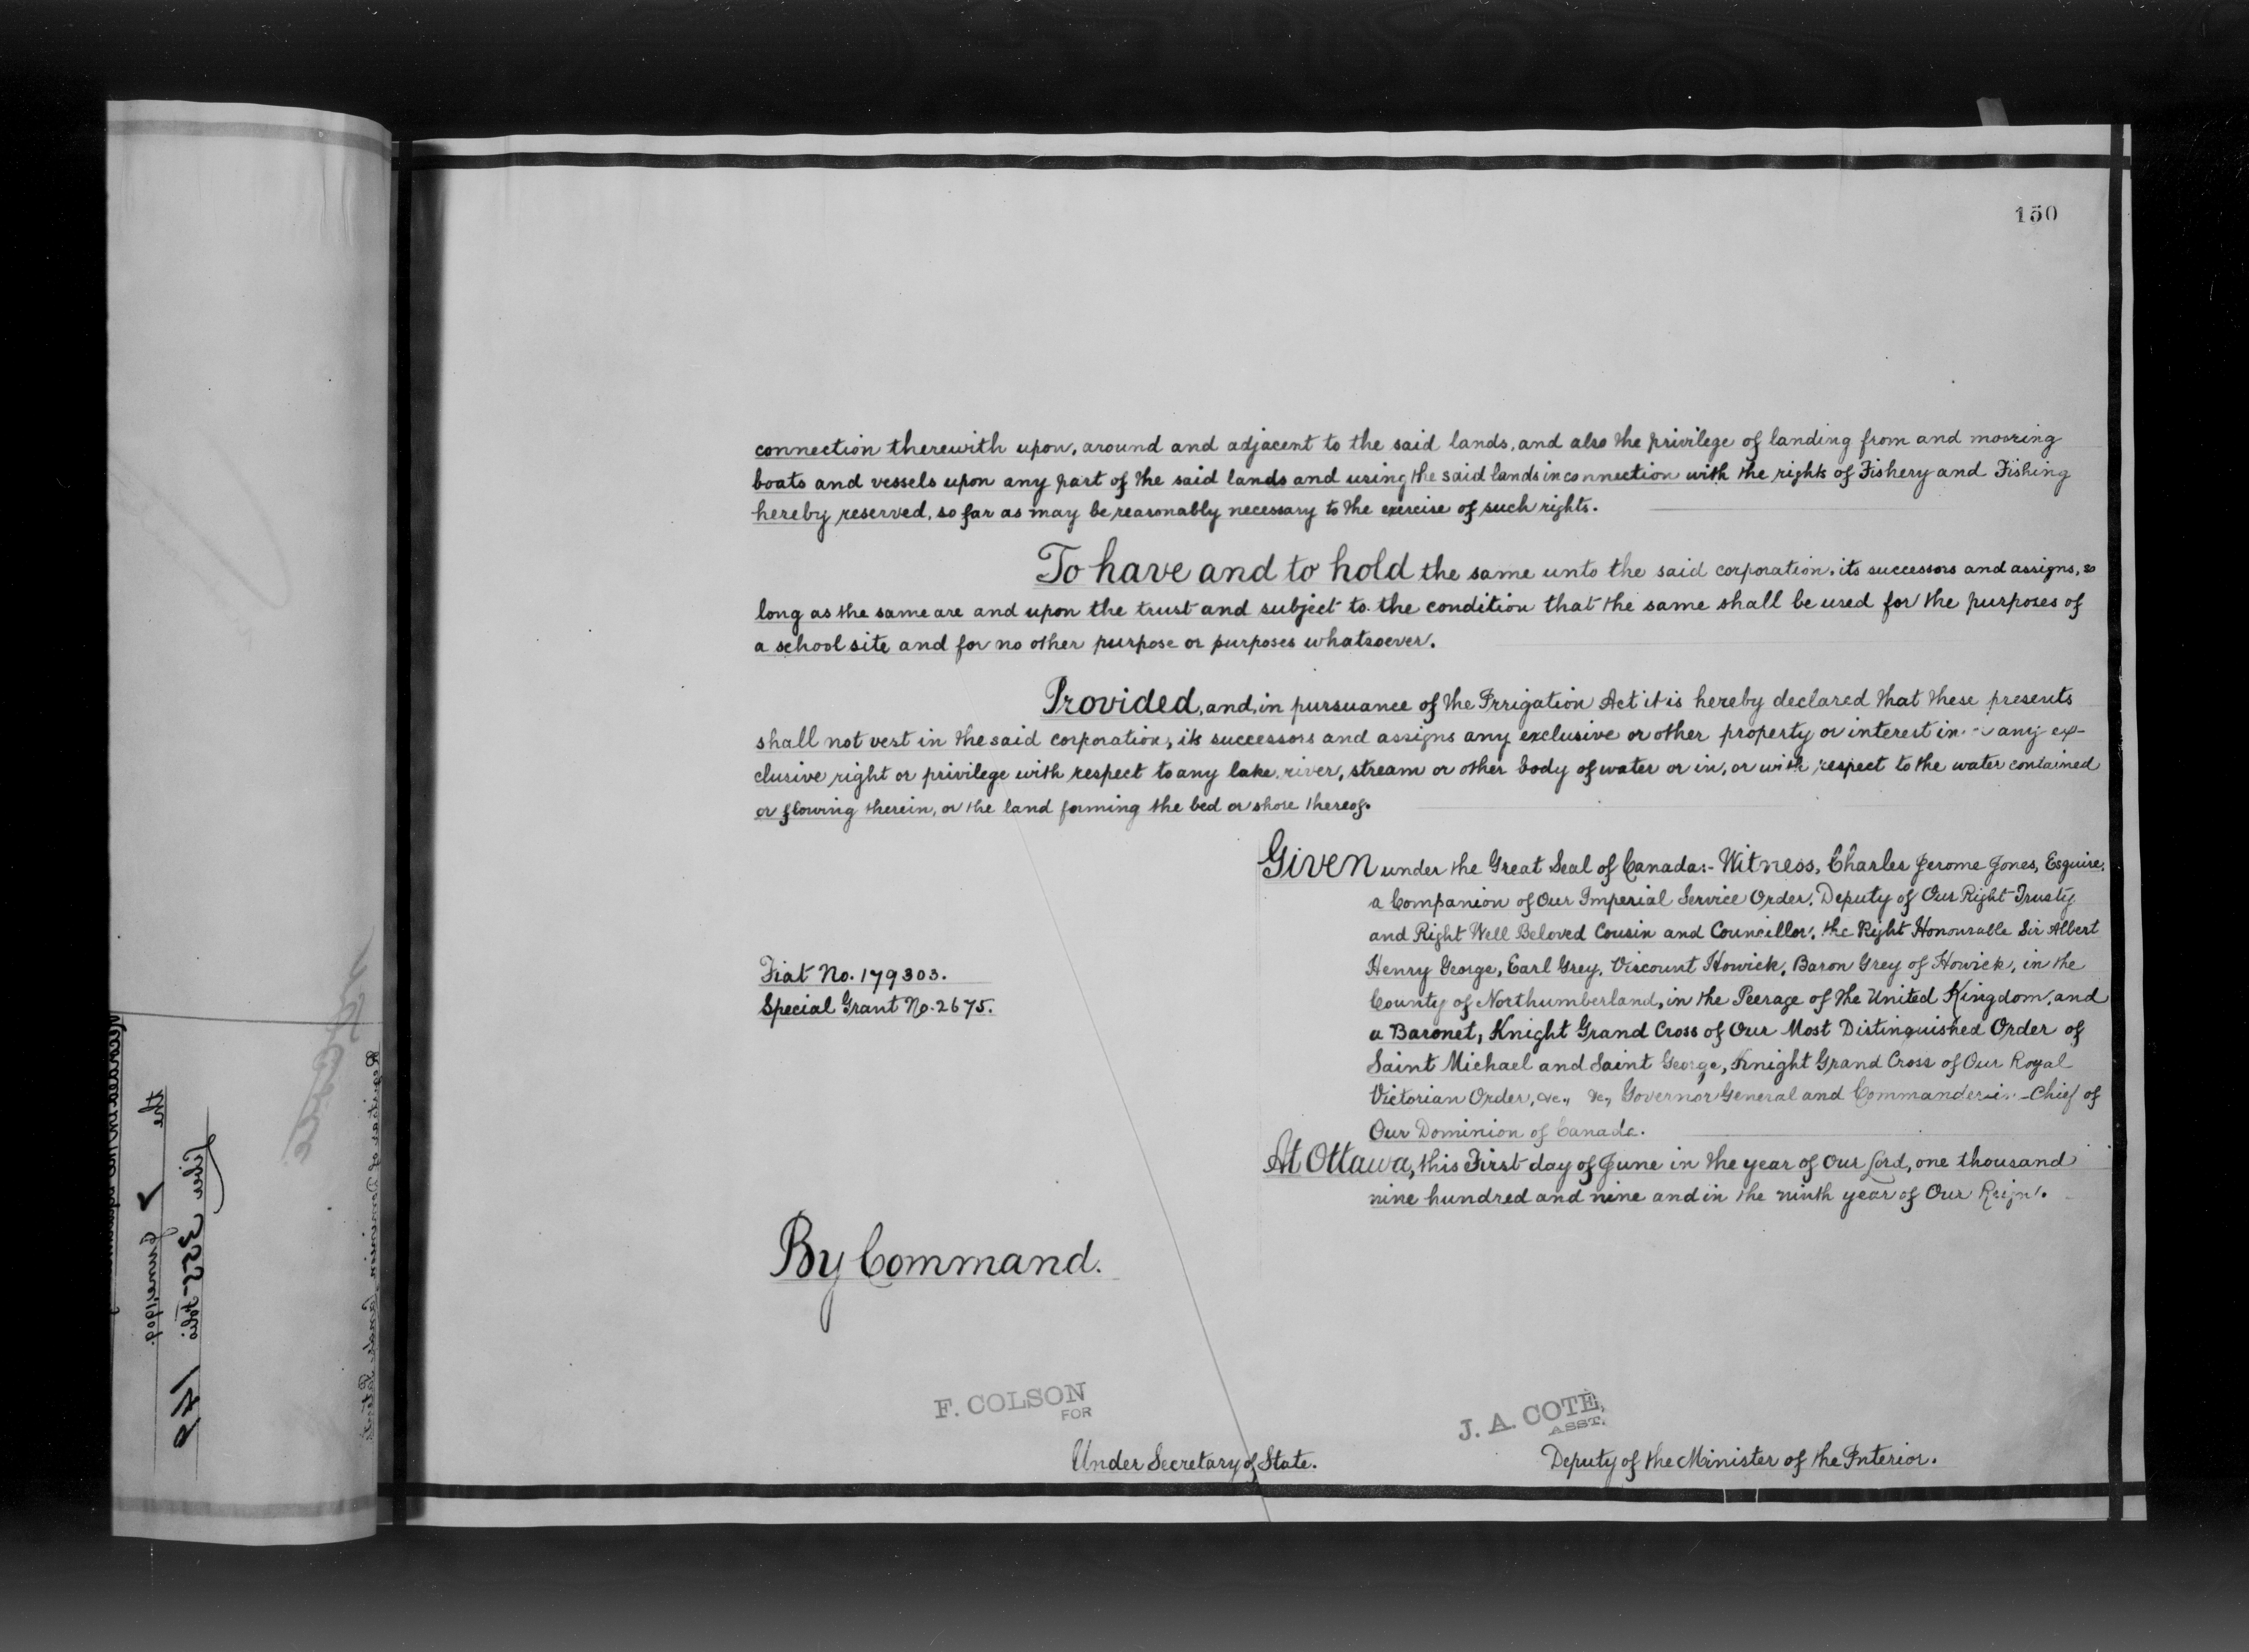 150
connection therewith upon, around and adjacent to the said lands, and also the privilege of landing from and mooring
boats and vessels upon any part of the said lands and using the said lands in connection with the rights of Fishery and Fishing
hereby reserved, so far as may be reasonably necessary to the exercise of such rights.
To have and to hold the same unto the said corporation, its successors and assigns, so
long as the same are and upon the trust and subject to the condition that the same shall be used for the purposes of
a school site and for no other purpose or purposes whatsoever.
Provided, and, in pursuance of the Irrigation Act it is hereby declared that these presents
shall not vest in the said corporation, its successors and assigns any exclusive or other property or interest in any ex-
clusive right or privilege with respect to any lake, river, stream or other body of water or in, or with respect to the water contained
or flowing therein, or the land forming the bed or shore thereof.
Given under the Great Seal of Canada:- Witness, Charles Jerome Jones, Esquire,
a Companion of Our Imperial Service Order, Deputy of Our Right Trusty
and Right Well Beloved Cousin and Councillor, the Right Honourable Sir Albert
Henry George, Earl Grey, Viscount Howick, Baron Grey of Howick, in the
County of Northumberland, in the Peerage of the United Kingdom, and
a Baronet, Knight Grand Cross of Our Most Distinguished Order of
Saint Michael and Saint George, Knight Grand Cross of Our Royal
Victorian Order, &c., &c., Governor General and Commander-in-Chief of
Our Dominion of Canada.
At Ottawa, this First day of June in the year of Our Lord, one thousand
nine hundred and nine and in the ninth year of Our Reign.
Fiat No. 179303.
Special Grant No. 2675.
By Command.
F. COLSON
FOR
Under Secretary of State.
J. A. COTE,
ASST.
Deputy of the Minister of the Interior.
the 7 June, 1909.
Liber 355 - Folio 149
Registrar of Dominion Lands Patents